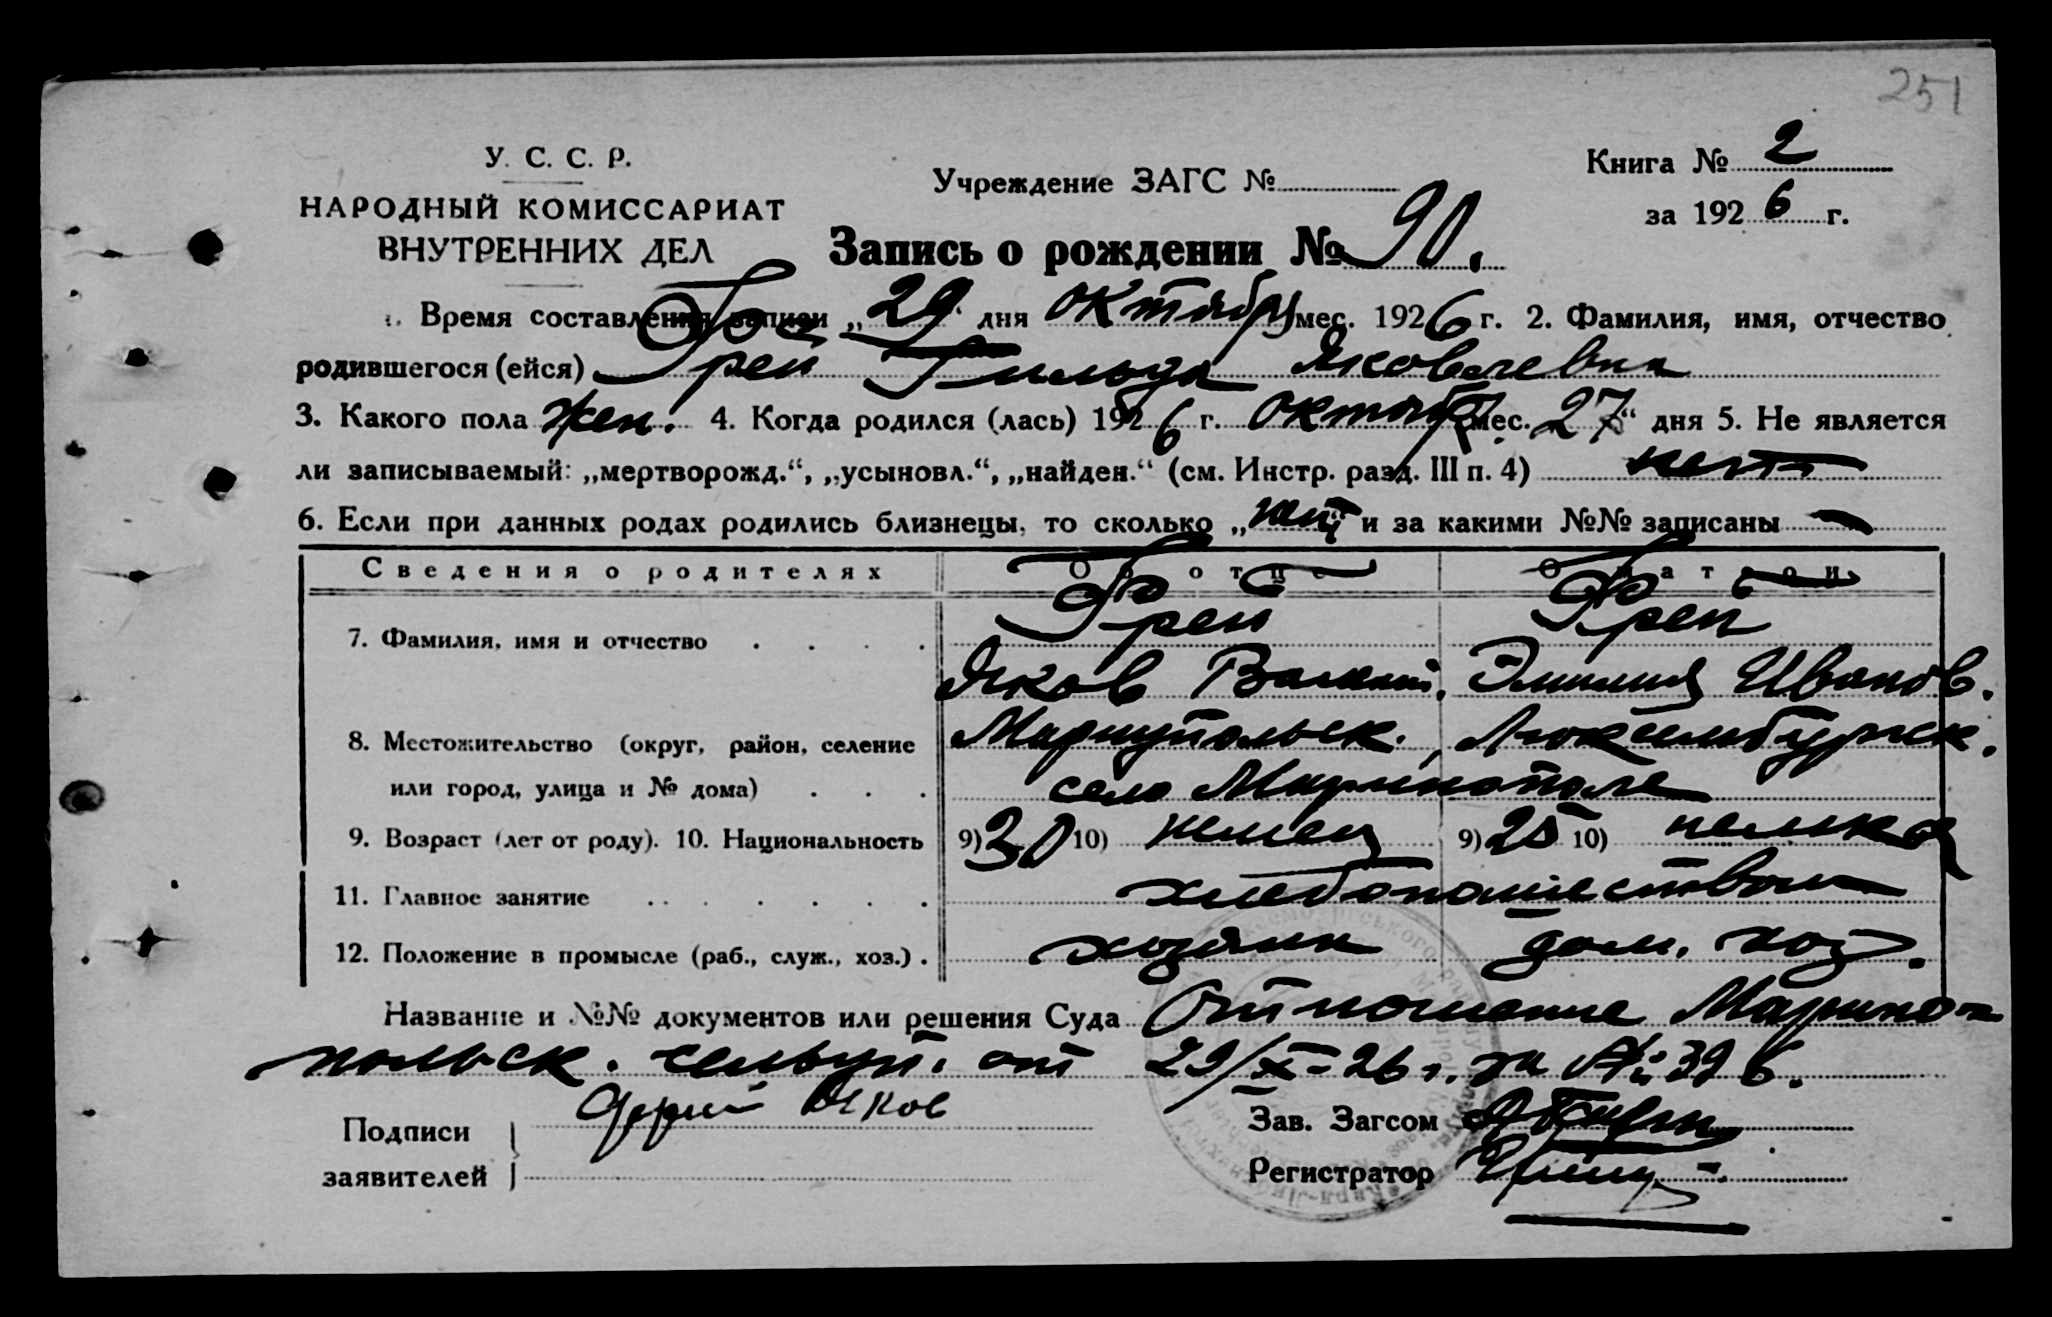 251
У. С. С. Р.
НАРОДНЫЙ КОМИССАРИАТ
ВНУТРЕННИХ ДЕЛ
Учреждение ЗАГС №
Книга № 2
за 1926 г.
Запись о рождении № 90.
1. Время составления записи „29“ дня октября мес. 1926 г. 2. Фамилия, имя, отчество
родившегося (ейся) Фрей Гильда Яковлевна
3. Какого пола жен. 4. Когда родился (лась) 1926 г. октября мес. „27“ дня 5. Не является
ли записываемый: „мертворожд.“, „усыновл.“, „найден.“ (см. Инстр. разд. III п. 4) нет
6. Если при данных родах родились близнецы, то сколько „нет“ и за какими №№ записаны —
Сведения о родителях Об отце О матери
7. Фамилия, имя и отчество Фрей Фрей
Яков Валент. Эмилия Иванов.
8. Местожительство (округ, район, селение Мариупольск. Люксембургск.
или город, улица и № дома) село Мариинополе
9. Возраст (лет от роду). 10. Национальность 9) 30 10) немец 9) 25 10) немка
11. Главное занятие хлебопашеством
12. Положение в промысле (раб., служ., хоз.) хозяин дом. хоз.
Название и №№ документов или решения Суда Отношение Марино-
польск. сельуп. от 29/X-26 г. за №: 396.
Подписи Яков
заявителей
Зав. Загсом
Регистратор